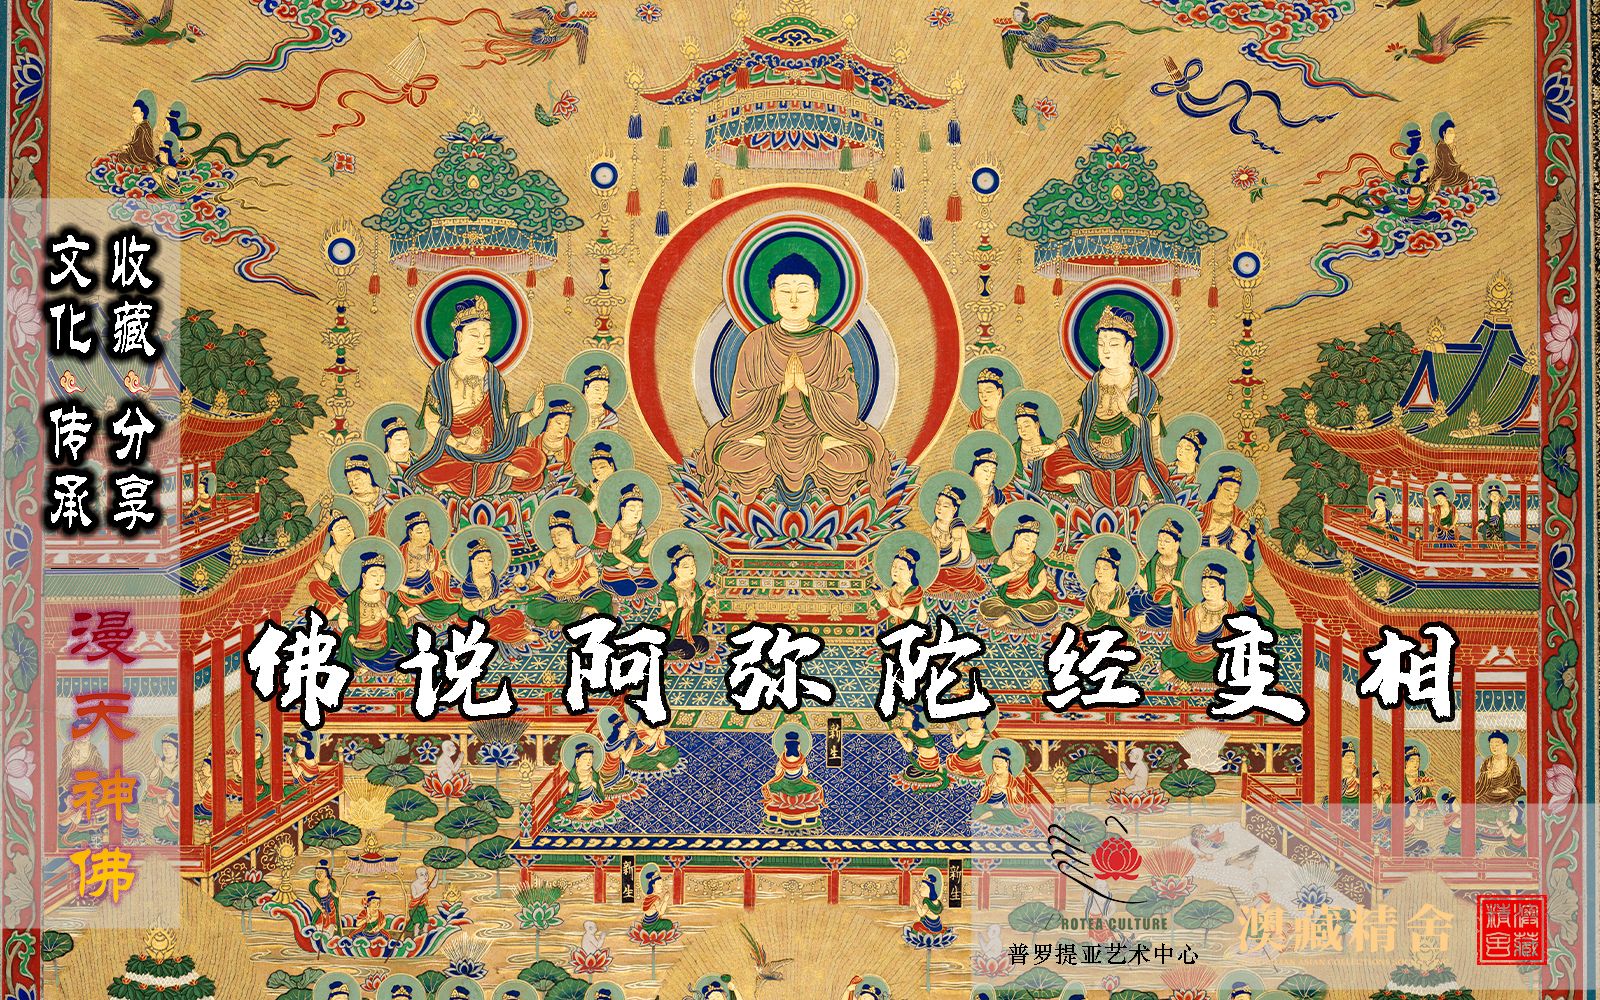 收藏 分享
文化 传承
漫天神佛
佛说阿弥陀经变相
新生
新生
新生
PROTEA CULTURE
普罗提亚艺术中心
澳藏精舍
澳藏
精舍